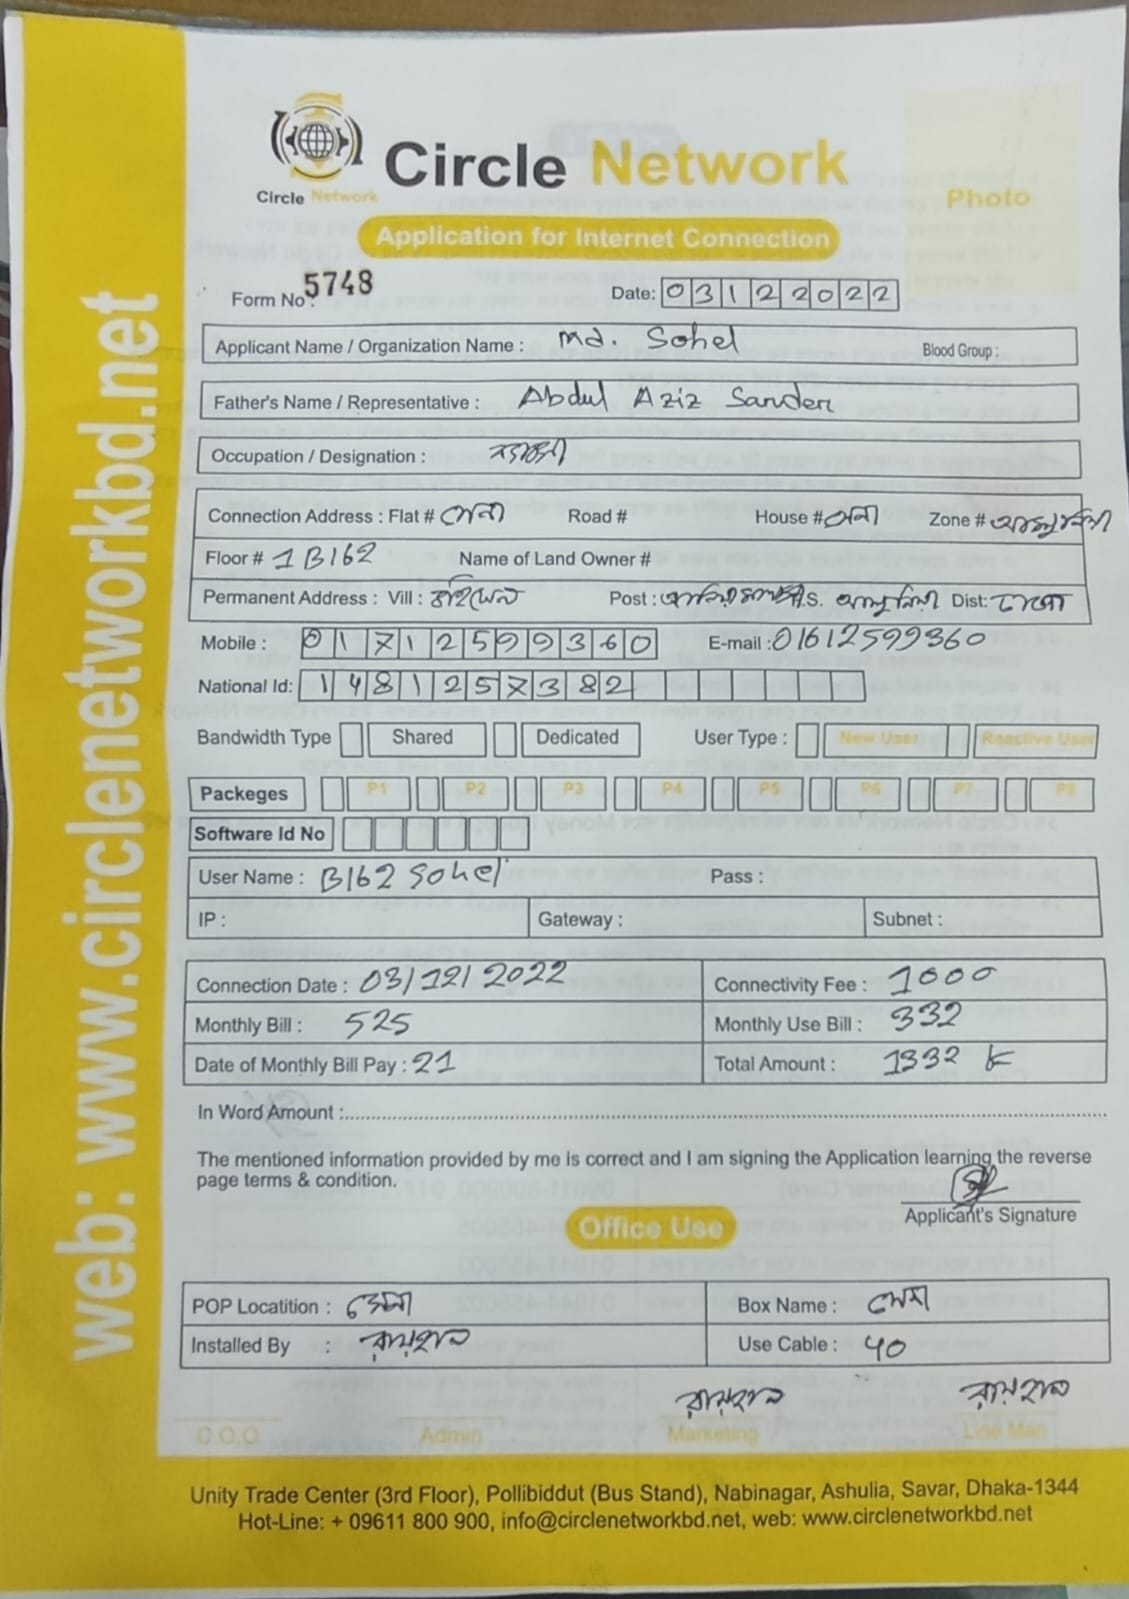 web: www.circlenetworkbd.net
Circle Network
Circle Network
Photo
Application for Internet Connection
Form No : 5748 Date: 03122022
Applicant Name / Organization Name : Md. Sohel Blood Group :
Father's Name / Representative : Abdul Aziz Sarder
Occupation / Designation :
Connection Address : Flat # Road # House # Zone #
Floor # 1 B162 Name of Land Owner #
Permanent Address : Vill : Post : P.S. Dist: ঢাকা
Mobile : 01712599360 E-mail : 01612599360
National Id: 1481257382
Bandwidth Type Shared Dedicated User Type : New User Reactive User
Packeges P1 P2 P3 P4 P5 P6 P7 P8
Software Id No
User Name : B162 Sohel Pass :
IP : Gateway : Subnet :
Connection Date : 03/12/2022 Connectivity Fee : 1000
Monthly Bill : 525 Monthly Use Bill : 332
Date of Monthly Bill Pay : 21 Total Amount : 1332
In Word Amount :
The mentioned information provided by me is correct and I am signing the Application learning the reverse
page terms & condition.
Applicant's Signature
Office Use
POP Locatition : Box Name :
Installed By : রায়হান Use Cable : 40
রায়হান রায়হান
C.O.O Admin Marketing Line Man
Unity Trade Center (3rd Floor), Pollibiddut (Bus Stand), Nabinagar, Ashulia, Savar, Dhaka-1344
Hot-Line: + 09611 800 900, info@circlenetworkbd.net, web: www.circlenetworkbd.net